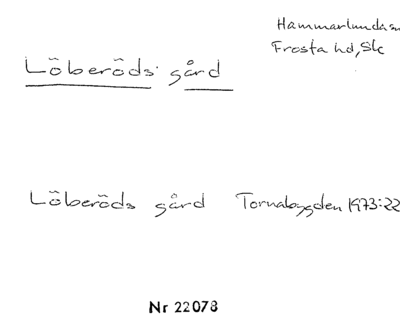 Hammarlunda sn
Frosta hd, Sk
Löberöds gård
Löberöds gård Tornabygden 1973:22
Nr 22078